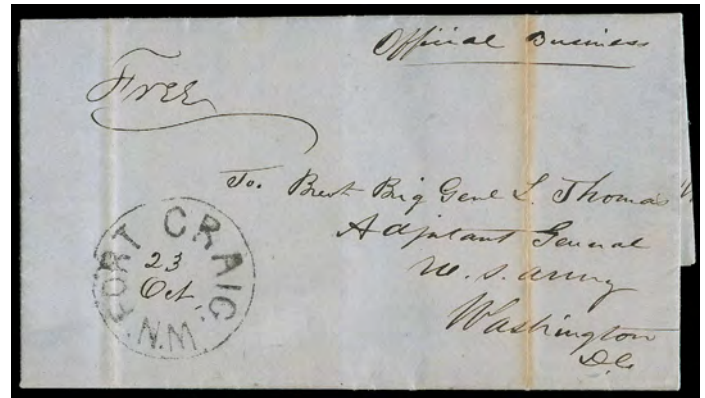 Official Business
Free
To. Brevt Brig Genl L. Thomas
Adjutant General
U. S. Army
Washington
D.C.
FORT CRAIG, N.M.
23
Oct.